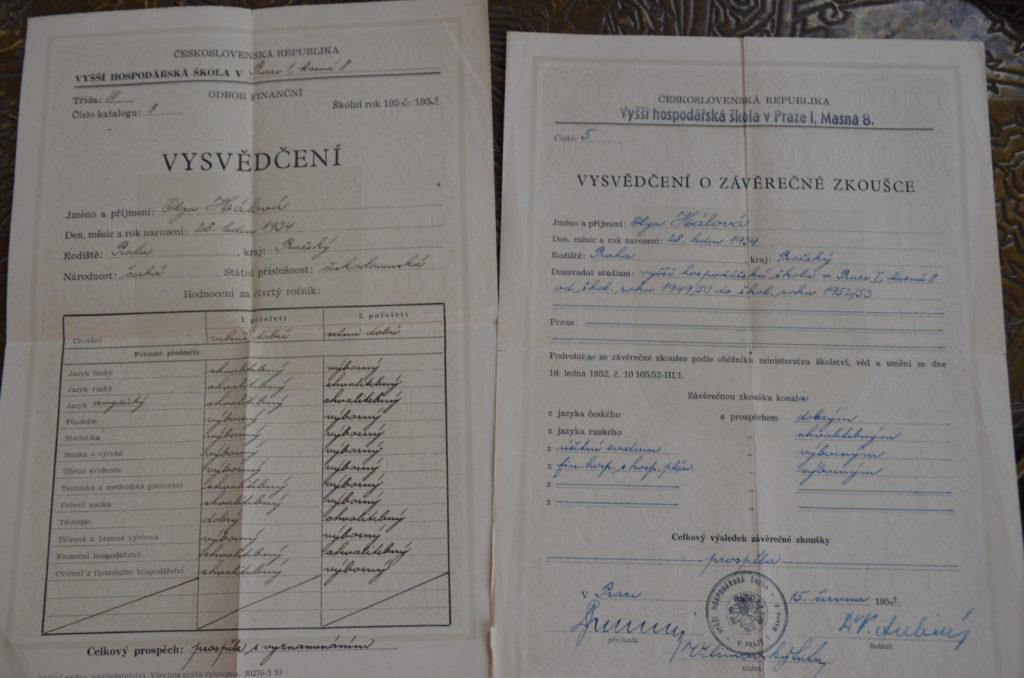 ČESKOSLOVENSKÁ REPUBLIKA
VYŠŠÍ HOSPODÁŘSKÁ ŠKOLA V Praze I, Masná 8
ODBOR FINANČNÍ
Třída:
Číslo katalogu: 8
Školní rok 1952/1953
VYSVĚDČENÍ
Jméno a příjmení: Olga Hálová
Den, měsíc a rok narození: 28. leden 1934
Rodiště: Praha, kraj: Pražský
Národnost: česká Státní příslušnost: československá
Hodnocení za čtvrtý ročník:
1. pololetí 2. pololetí
Chování velmi dobré velmi dobré
Povinné předměty:
Jazyk český chvalitebný výborný
Jazyk ruský chvalitebný chvalitebný
Jazyk anglický chvalitebný chvalitebný
Filosofie výborný výborný
Statistika výborný výborný
Nauka o výrobě výborný výborný
Účetní evidence výborný výborný
Technika a methodika plánování chvalitebný výborný
Právní nauka chvalitebný výborný
Těsnopis dobrý chvalitebný
Tělesná a branná výchova výborný výborný
Finanční hospodářství chvalitebný chvalitebný
Cvičení z finančního hospodářství chvalitebný výborný
Celkový prospěch: prospěla s vyznamenáním
Státní nakladatelství. Všechna práva vyhrazena. 30276-3 53
ČESKOSLOVENSKÁ REPUBLIKA
Vyšší hospodářská škola v Praze I, Masná 8.
Číslo: 5
VYSVĚDČENÍ O ZÁVĚREČNÉ ZKOUŠCE
Jméno a příjmení: Olga Hálová
Den, měsíc a rok narození: 28. leden 1934
Rodiště: Praha, kraj: Pražský
Dosavadní studium: vyšší hospodářská škola v Praze I, Masná 8
od škol. roku 1949/50 do škol. roku 1952/53
Praxe:
Podrobila se závěrečné zkoušce podle oběžníku ministerstva školství, věd a umění ze dne
16. ledna 1952, č. 10 105/52-III/1.
Závěrečnou zkoušku konala
z jazyka českého s prospěchem dobrým
z jazyka ruského " chvalitebným
z účetní evidence " výborným
z fin. hosp. s hosp. plán. " výborným
z "
z "
Celkový výsledek závěrečné zkoušky
prospěla
V Praze 15. června 1953
VYŠŠÍ HOSPODÁŘSKÁ ŠKOLA V PRAZE I
předseda
ředitel